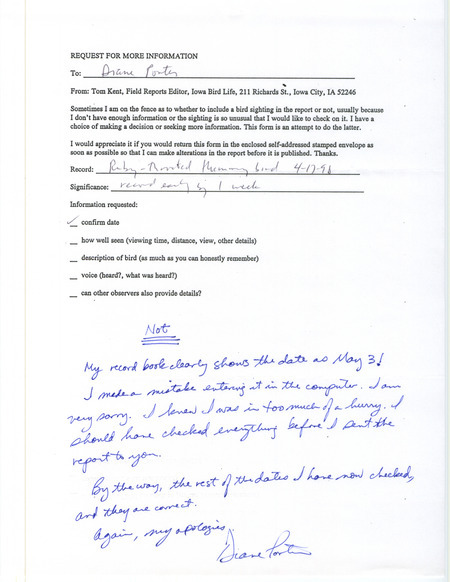 REQUEST FOR MORE INFORMATION
To: Diane Porter
From: Tom Kent, Field Reports Editor, Iowa Bird Life, 211 Richards St., Iowa City, IA 52246
Sometimes I am on the fence as to whether to include a bird sighting in the report or not, usually because
I don't have enough information or the sighting is so unusual that I would like to check on it. I have a
choice of making a decision or seeking more information. This form is an attempt to do the latter.
I would appreciate it if you would return this form in the enclosed self-addressed stamped envelope as
soon as possible so that I can make alterations in the report before it is published. Thanks.
Record: Ruby-throated Hummingbird 4-17-98
Significance: record early by 1 week
Information requested:
✓ confirm date
__ how well seen (viewing time, distance, view, other details)
__ description of bird (as much as you can honestly remember)
__ voice (heard?, what was heard?)
__ can other observers also provide details?
Not
My record book clearly shows the date as May 3!
I made a mistake entering it in the computer. I am
very sorry. I knew I was in too much of a hurry. I
should have checked everything before I sent the
report to you.
By the way, the rest of the dates I have now checked,
and they are correct.
Again, my apologies.
Diane Porter